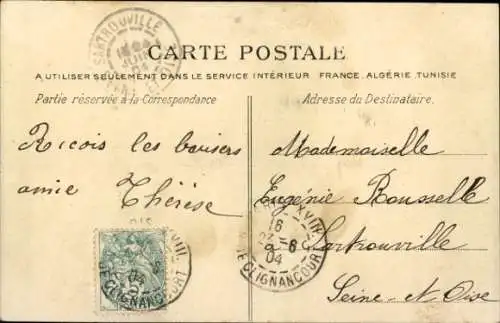 SARTROUVILLE
JUIN
04
CARTE POSTALE
A UTILISER SEULEMENT DANS LE SERVICE INTÉRIEUR FRANCE, ALGÉRIE, TUNISIE
Partie réservée à la Correspondance
Adresse du Destinataire.
Recois les baisers
amie Thérèse
Mademoiselle
Eugénie Rousselle
à Sartrouville
Seine et Oise
XVIII
16
-6
04
CLIGNANCOURT
XVIII
6
04
CLIGNANCOURT